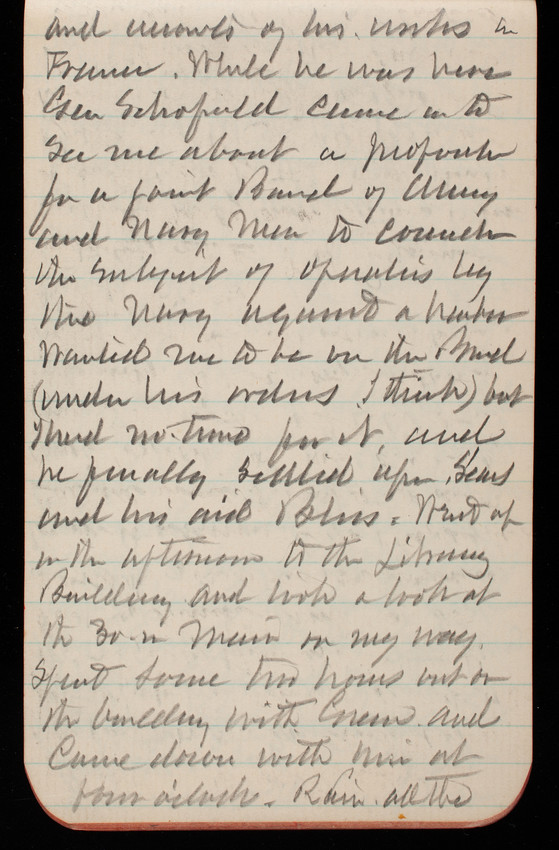 and records of his works in
France. While he was here
Gen Schofield came in to
see me about a proposition
for a joint Board of Army
and Navy Men to consider
the subject of operations by
the Navy against a harbor
Wanted me to be on the Board
(under his orders I think) but
I had no time for it, and
he finally settled upon Sears
and his aid Bliss. Went up
in the afternoon to the Library
Building and took a look at
the 30-in Main on my way.
Spent some two hours out on
the building with Green and
Came down with him at
four o'clock. Rain all the